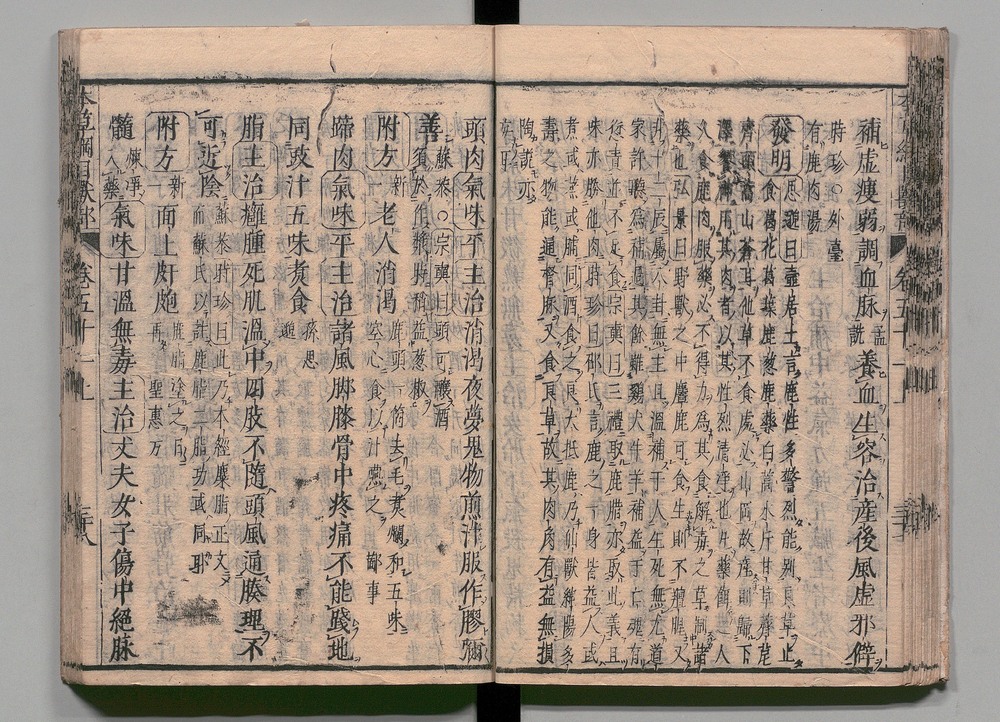 補虛瘦弱調血脉孟詵養血生容治產後風虛邪僻
時珍○外臺
有鹿肉湯
發明思邈曰壺居士言鹿性多警烈能別良草止
食葛花葛葉鹿葱鹿藥白蒿水芹甘草薺苨
齊頭蒿山蒼耳他草不食處必山岡故產則歸下
澤饗神用其肉者以其性烈清淨也凡藥餌之人
久食鹿肉服藥必不得力為其食解毒之草制諸
藥也弘景曰野獸之中麞鹿可食生則不羶腥又
非十二辰屬八卦無主且溫補于人生死無尤道
家許聽為脯過其餘雖雞犬牛羊補益于亡魂有
愆責並不足食宗奭曰三禮取鹿腊亦取此義且
味亦勝他肉時珍曰邵氏言鹿之一身皆益人或
煮或蒸或脯同酒食之良大抵鹿乃仙獸純陽多
壽之物能通督脉又食良草故其肉角有益無損
陶說亦
頭肉氣味平主治消渴夜夢鬼物煎汁服作膠彌
善蘇恭○宗奭曰頭可釀酒
須於作漿時稍益葱椒
附方新一老人消渴鹿頭一箇去毛煮爛和五味
空心食以汁嚥之 鄙事
蹄肉氣味平主治諸風脚膝骨中疼痛不能踐地
同豉汁五味煮食孫思邈
脂主治癰腫死肌溫中四肢不隨頭風通腠理不
可近陰蘇恭時珍曰此乃本經麋脂正文
而蘇氏以註鹿脂二脂功或同耶
附方新一面上皯皰鹿脂塗之日
再 聖惠方
髓煉淨入藥氣味甘溫無毒主治丈夫女子傷中絕脉